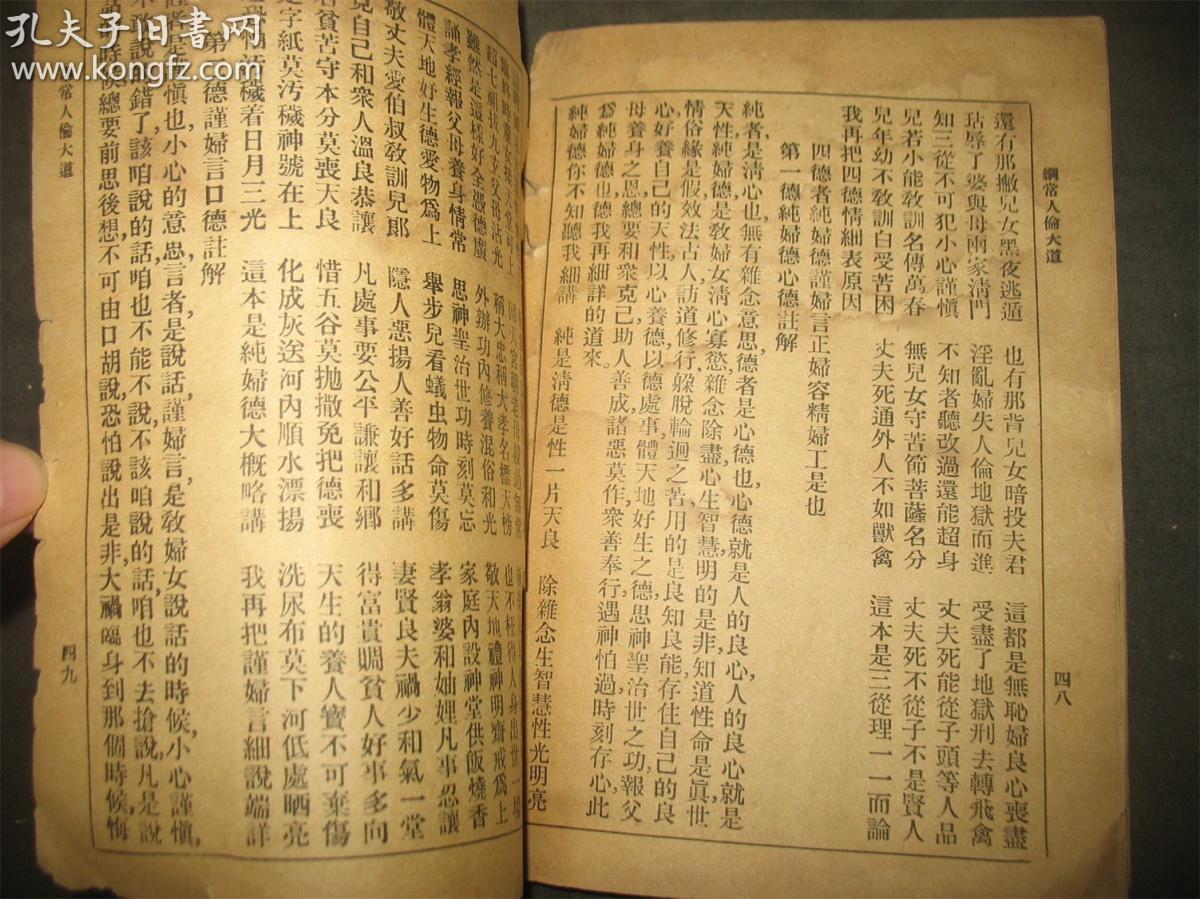 孔夫子旧书网
www.kongfz.com
綱常人倫大道
四八
還有那撇兒女黑夜逃遁 也有那背兒女暗投夫君 這都是無恥婦良心喪盡
玷辱了婆與母兩家淸門 淫亂婦失人倫地獄而進 受盡了地獄刑去轉飛禽
知三從不可犯小心謹愼 不知者聽改過還能超身 丈夫死能從子頭等人品
兒若小能敎訓名傳萬春 無兒女守苦節菩薩名分 丈夫死不從子不是賢人
兒年幼不敎訓白受苦困 丈夫死通外人不如獸禽 這本是三從理一一而論
我再把四德情細表原因
四德者純婦德謹婦言正婦容精婦工是也
第一德純婦德心德註解
純者是淸心也無有雜念意思德者是心德也心德就是人的良心人的良心就是
天性純婦德是敎婦女淸心寡慾雜念除盡心生智慧明的是非知道性命是眞世
情俗緣是假效法古人訪道修行躱脫輪迴之苦用的是良知良能存住自己的良
心好養自己的天性以心養德以德處事體天地好生之德思神聖治世之功報父
母養身之恩總要和衆克己助人善成諸惡莫作衆善奉行遇神怕過時刻存心此
爲純婦德也德我再細詳的道來
純婦德你不知聽我細講 純是淸德是性一片天良 除雜念生智慧性光明亮
超七祖拔九玄父母沾光 稱大忠稱大孝名標天榜 也不枉得人身出世一塲
雖然是這樣好全憑德廣 外辦功內修養混俗和光 敬天地禮神明齋戒爲上
誦孝經報父母養身情常 思神聖治世功時刻莫忘 家庭內設神堂供飯燒香
體天地好生德愛物爲上 舉步兒看蟻虫物命莫傷 孝翁婆和妯娌凡事忍讓
敬丈夫愛伯叔敎訓兒郞 隱人惡揚人善好話多講 妻賢良夫禍少和氣一堂
克自己和衆人溫良恭讓 凡處事要公平謙讓和鄕 得富貴賙貧人好事多向
若貧苦守本分莫喪天良 惜五谷莫抛撒免把德喪 天生的養人寳不可棄傷
字紙莫汚穢神號在上 化成灰送河內順水漂揚 洗尿布莫下河低處晒亮
穢着日月三光 這本是純婦德大槪略講 我再把謹婦言細說端詳
第二德謹婦言口德註解
謹者是謹愼也小心的意思言者是說話謹婦言是敎婦女說話的時候小心謹愼
不該說錯了該咱說的話咱也不能不說不該咱說的話咱也不去搶說凡是說
話時候總要前思後想不可由口胡說恐怕說出是非大禍臨身到那個時候悔
常人倫大道
四九